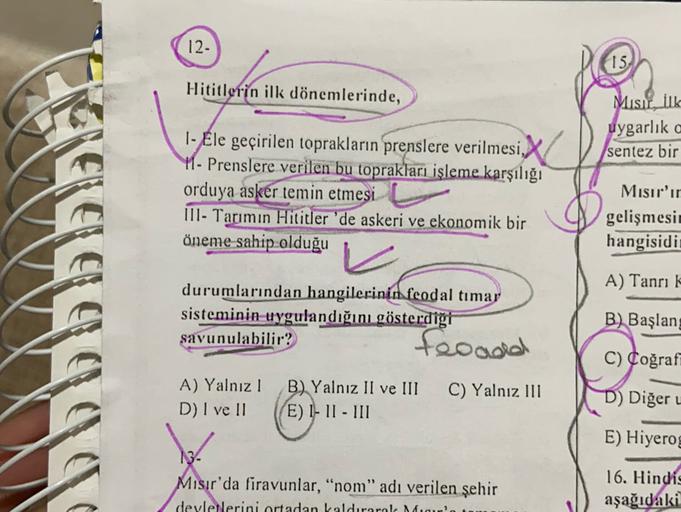 12-
Hititlerin ilk dönemlerinde,
I- Ele geçirilen toprakların prenslere verilmesi,
II- Prenslere verilen bu toprakları işleme karşılığı
orduya asker temin etmesi
III- Tarımın Hititler 'de askeri ve ekonomik bir
öneme sahip olduğu
durumlarından hangilerinin feodal tımar
sisteminin uygulandığını gösterdiği
savunulabilir?
A) Yalnız I B) Yalnız II ve III C) Yalnız III
D) I ve II E) I- II - III
13-
Mısır'da firavunlar, “nom” adı verilen şehir
devletlerini ortadan kaldırarak
15-
Mısır, ilk
uygarlık
sentez bir
Mısır'ın
A) Tanrı
C)
D) Diğer
16.